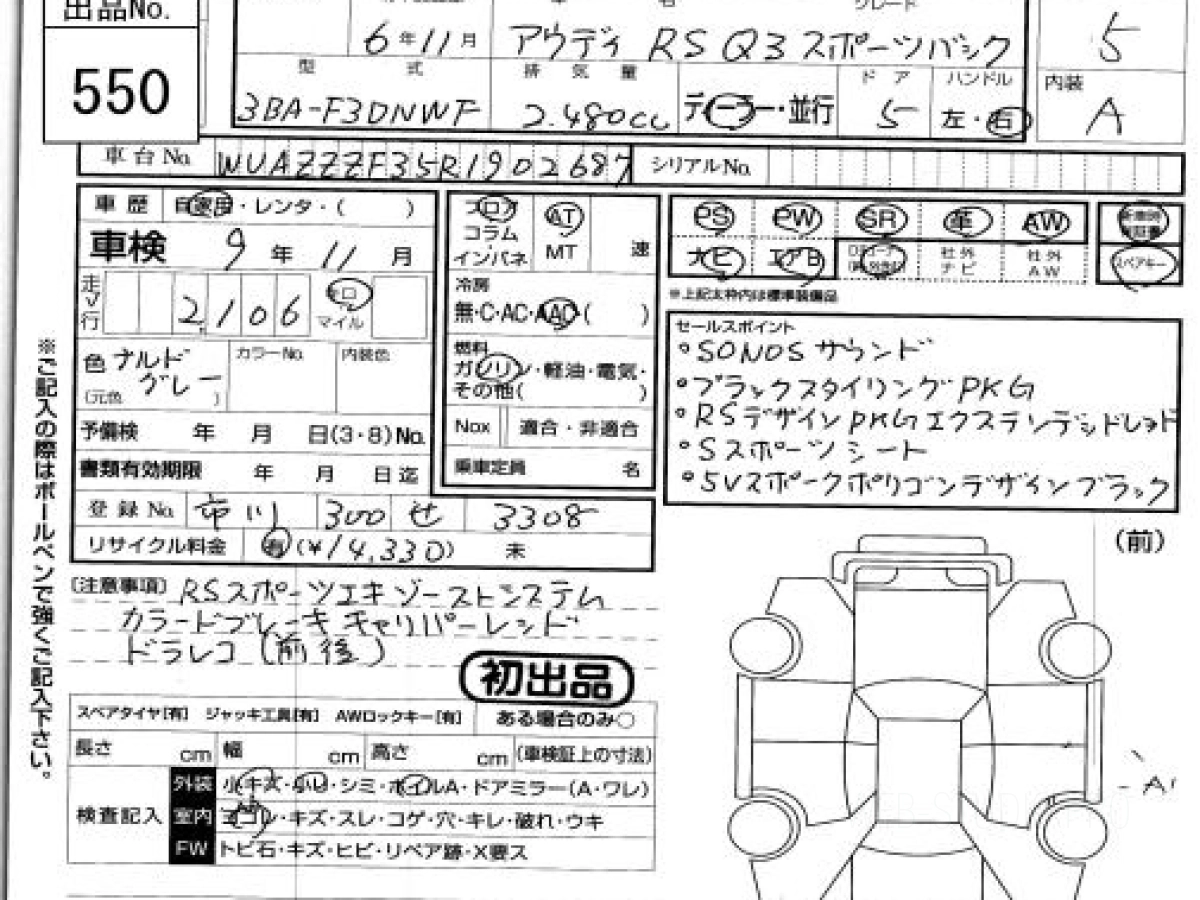 出品No.
550
グレード
6年11月
アウディ RS Q3 スポーツバック
5
型式
排気量
ドア
ハンドル
内装
3BA-F3DNWF
2.480cc
ディーラー・並行
5
左・右
A
車台No.
WUAZZZF35R1902687
シリアルNo.
車歴
自家用・レンタ・( )
車検
9年11月
走行
2,106
キロ
マイル
色
ナルド
グレー
(元色 )
カラーNo.
内装色
予備検 年 月 日(3・8)No.
書類有効期限 年 月 日迄
登録No.
市川 300 せ 3308
リサイクル料金
有(¥14,330) 未
フロア
コラム
インパネ
AT
MT
速
冷房
無・C・AC・AAC( )
燃料
ガソリン・軽油・電気・
その他( )
Nox
適合・非適合
乗車定員 名
PS
PW
SR
革
AW
ナビ
エアB
社外
ナビ
社外
AW
新車時
保証書
スペアキー
※上記太枠内は標準装備品
セールスポイント
°SONOSサウンド
°ブラックスタイリングPKG
°RSデザインPKGエクステンデッドレッド
°Sスポーツシート
°5Vスポークポリゴンデザインブラック
(注意事項)
RSスポーツエキゾーストシステム
カラードブレーキキャリパーレッド
ドラレコ(前後)
初出品
※ご記入の際はボールペンで強くご記入下さい。
スペアタイヤ[有] ジャッキ工具[有] AWロックキー[有] ある場合のみ○
長さ cm 幅 cm 高さ cm (車検証上の寸法)
検査記入
外装
小キズ・小凹・シミ・ホイルA・ドアミラー(A・ワレ)
室内
ヨゴレ・キズ・スレ・コゲ・穴・キレ・破れ・ウキ
FW
トビ石・キズ・ヒビ・リペア跡・X要ス
(前)
A1